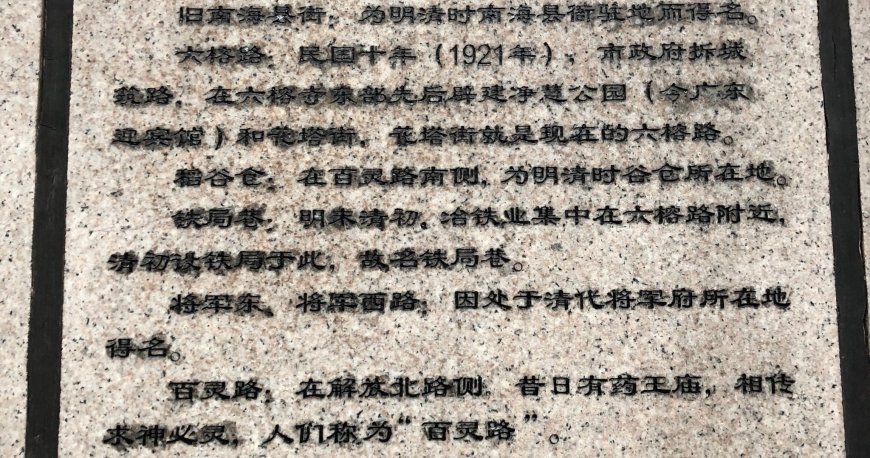 旧南海县街：为明清时南海县衙驻地而得名。
六榕路：民国十年（1921年），市政府拆城
筑路，在六榕寺东部先后辟建净慧公园（今广东
迎宾馆）和花塔街，花塔街就是现在的六榕路。
稻谷仓：在百灵路南侧，为明清时谷仓所在地。
铁局巷：明末清初，冶铁业集中在六榕路附近，
清初设铁局于此，故名铁局巷。
将军东、将军西路：因处于清代将军府所在地
得名。
百灵路：在解放北路侧，昔日有药王庙，相传
求神必灵，人们称为“百灵路”。